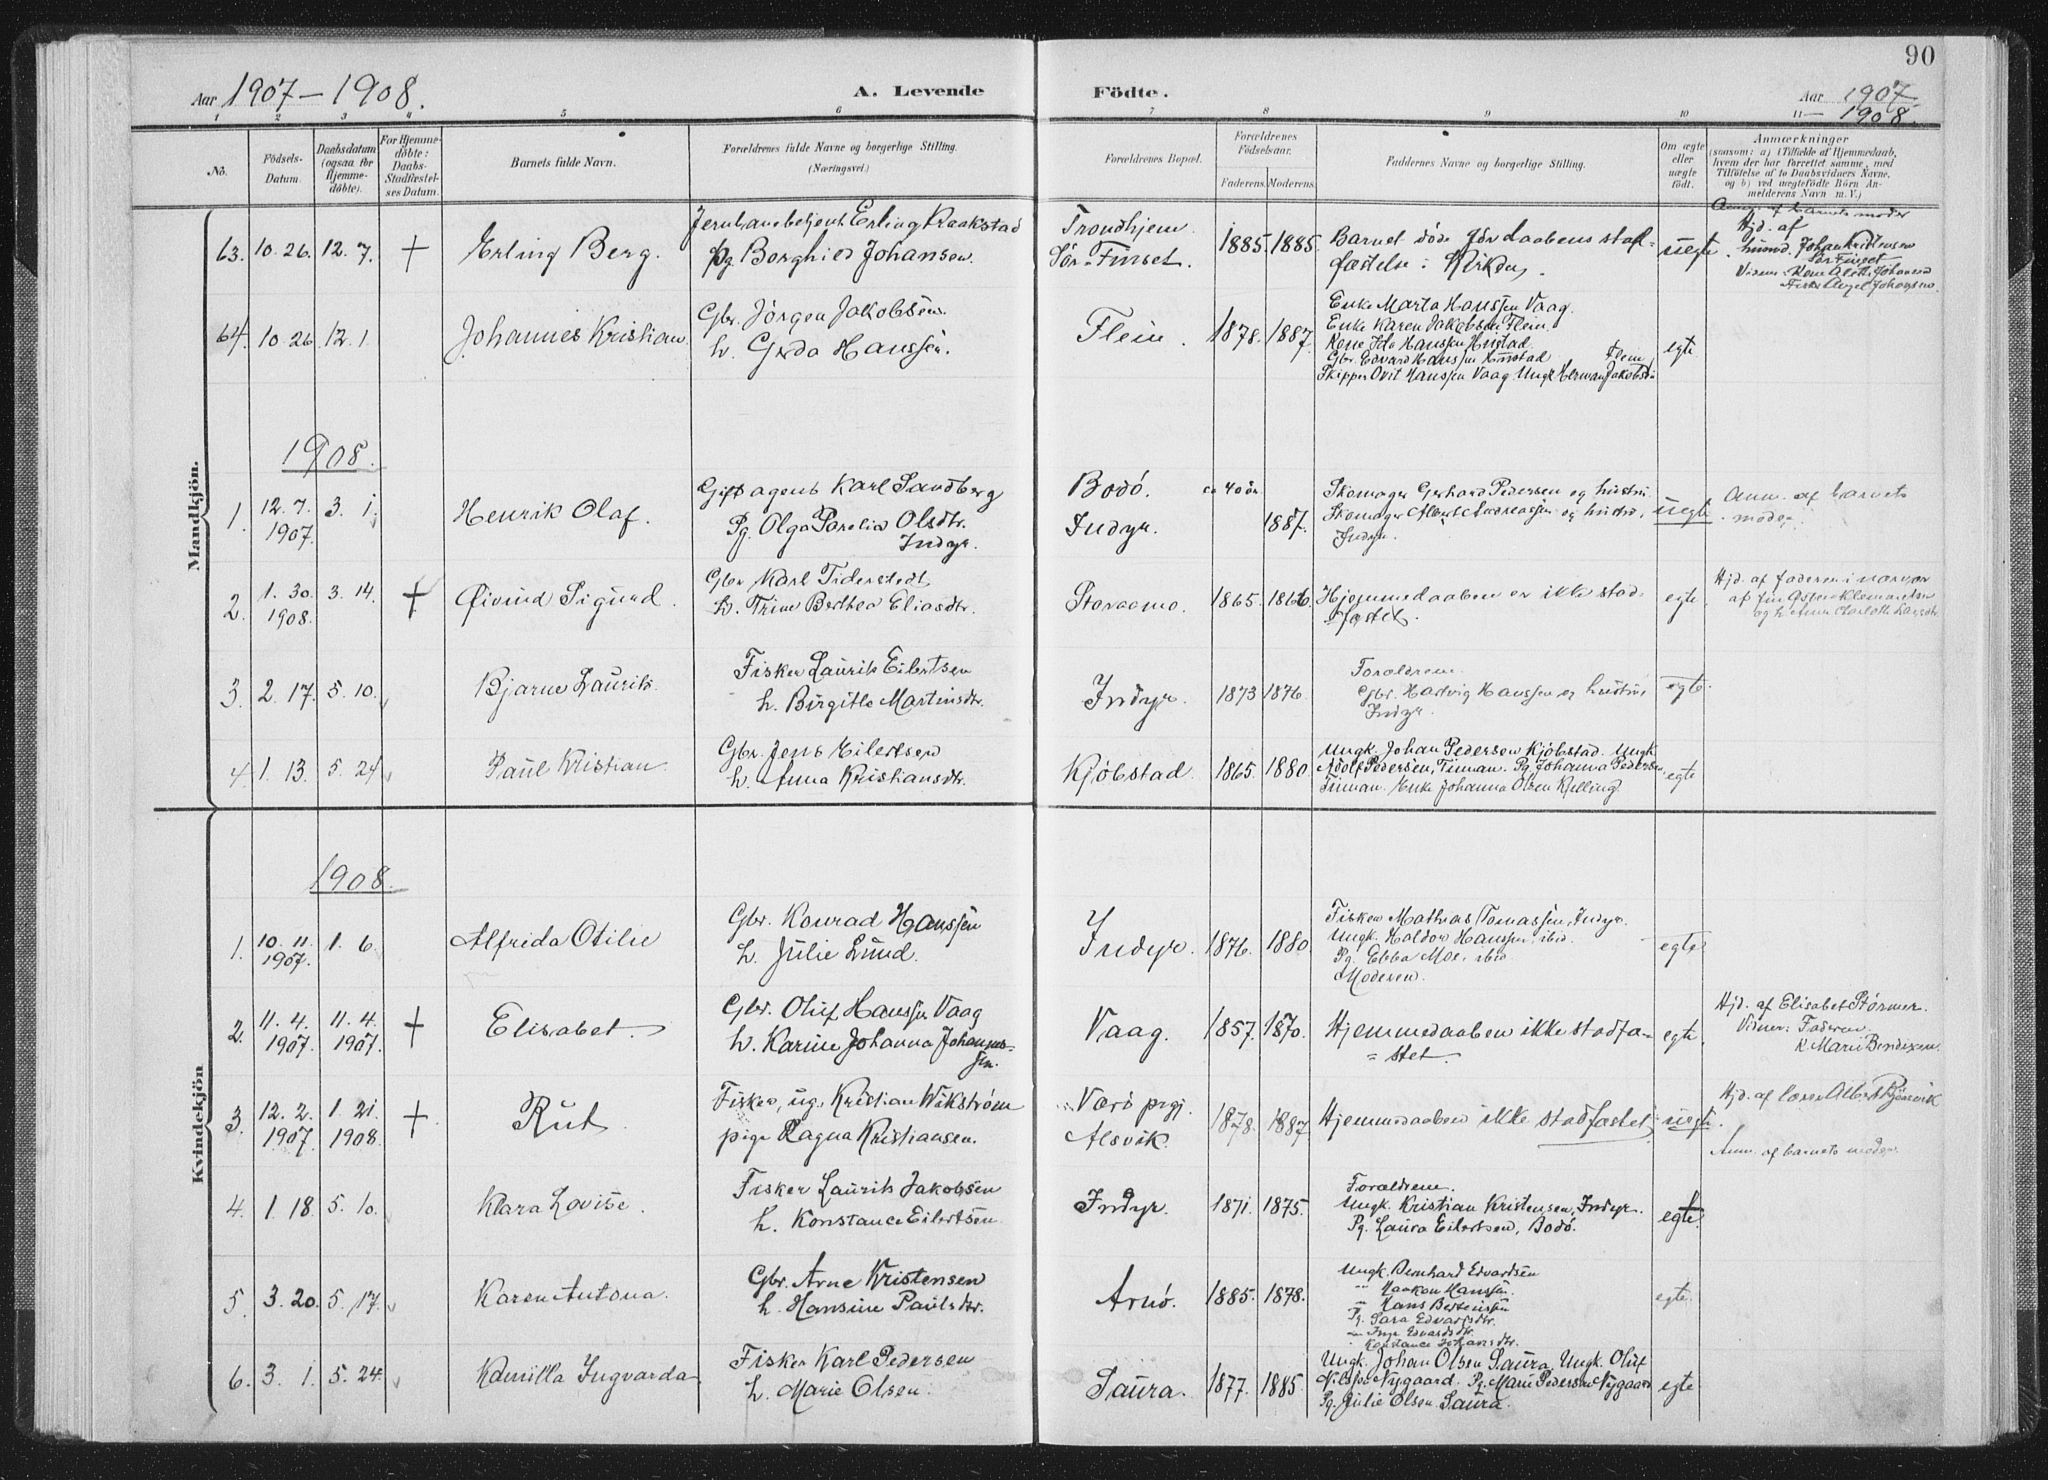 90
Aar 1907-1908. A. Levende Födte. Aar 1907-1908.
1 2 3 4 5 6 7 8 9 10 11
No.
Födsels-Datum.
Daabsdatum (ogsaa for Hjemme-döbte).
For Hjemme-döbte: Daabs-Stadfæstel-ses Datum.
Barnets fulde Navn.
Forældrenes fulde Navne og borgerlige Stilling.
(Næringsvei.)
Forældrenes Bopæl.
Forældrenes Födselsaar.
Faderens. Moderens.
Faddernes Navne og borgerlige Stilling.
Om ægte eller uægte födt.
Anmærkninger
(saasom: a) i Tilfælde af Hjemmedaab,
hvem der har forrettet samme, med
Tilföielse af to Daabsvidners Navne,
og b) ved uægtefödte Börn An-
melderens Navn m. V.)
Mandkjön.
63. 10.26. 12.7. + Erling Berg.
Jernbanebetjent Erling Kraakstad
pg Borghild Johansen.
Trondhjem.
Sör-Finset.
1885. 1885.
Barnet döde för daabens stad-
fæstelse i Kirken.
uegte.
Anm. af barnets moder
Hjd. af
64. 10.26 12.1. Johannes Kristian
Gbr. Jörgen Jakobsen.
h. Gerda Hanssen.
Flein. 1878. 1887.
Enke Marta Hanssen Vaag.
Enke Karen Jakobsen Flein.
Kone Ida Hanssen Hustad
Gbr. Edvard Hanssen Hustad Flein
Skipper Ovit Hanssen Vaag Ungk Herman Jakobsen
egte
1908.
1. 12.7. 1907. 3.1. Henrik Olaf.
Gift agent Karl Sandberg
Pg. Olga Parelia Olsdtr.
Indyr.
Bodö.
Indyr.
ca 40 år. 1887.
Skomager Gerhard Pedersen og hustru.
Skomager Albert Andreassen og hustru,
Indyr.
uegte
Anm. af barnets
moder
2. 1.30. 1908. 3.14. + Øivind Sigurd.
Gbr Karl Tiderstedt
h. Trine Berthea Eliasdtr.
Storaemo. 1865. 1866.
Hjemmedaaben er ikke stad-
fæstet.
egte
Hjd. af faderen i nærvær
3. 2.17. 5.10. Bjarne Laurits.
Fisker Laurits Eilertsen
h. Birgitte Martinsdtr.
Indyr. 1873 1876.
Forældrene.
Gbr. Hartvig Hanssen og hustru
Indyr.
egte.
4. 1.13. 5.24 Paul Kristian.
Gbr. Jens Eilertsen
h. Anna Kristiansdtr.
Kjöbstad. 1865. 1880.
Ungk. Johan Pedersen Kjöbstad. Ungk.
Adolf Pedersen, Finnan. Pg. Johanna Pedersen
Finnan. Enke Johanna Olsen Kjelling
egte
Kvindekjön
1908.
1. 10.11. 1907. 1.6. Alfrida Otilie
Gbr. Konrad Hanssen
h. Julie Lund.
Indyr. 1876. 1880.
Fisker Mathias Tomassen, Indyr.
Ungk. Haldor Hanssen ibid.
Pg. Ebba Moe, ibid.
Moderen.
egte
2. 11.4. 1907. 11.4. 1907. + Elisabet.
Gbr. Oluf Hanssen Vaag
h. Karine Johanna Johannes-
sen.
Vaag. 1857. 1870.
Hjemmedaaben ikke stadfæ-
stet.
egte.
Hjd. af Elisabet Störmer.
Vidner: Faderen.
K. Marie Bendixen.
3. 12.2. 1907. 1.21. 1908. + Rut.
Fisker, ug. Kristian Wikström
pige Ragna Kristiansen.
Værö prgj.
Alsvik.
1878. 1887
Hjemmedaaben ikke stadfæstet
uegte.
Anm. af barnets moder.
4. 1.18. 5.10. Klara Lovise.
Fisker Laurits Jakobsen
h. Konstance Eilertsen
Indyr. 1871. 1875.
Forældrene.
Ungk. Kristian Kristensen, Indyr.
Pg. Laura Eilertsen, Bodö.
egte.
5. 3.20. 5.17. Karen Antona.
Gbr. Arne Kristensen
h. Hansine Paulsdtr.
Arnö. 1885. 1878.
Ungk. Bernhard Edvardsen
" Haakon Hanssen.
" Hans Berteussen
Pg. Sara Edvardsdtr.
" Inga Edvardsdtr.
" Konstance Johansdtr.
egte.
6. 3.1. 5.24. Kamilla Ingvarda
Fisker Karl Pedersen
h. Marie Olsen.
Saura. 1877. 1885.
Ungk. Johan Olsen Saura, Ungk. Oluf
Nilsen Nygaard. Pg. Marie Pedersen Nygaard
Pg. Julie Olsen Saura.
egte